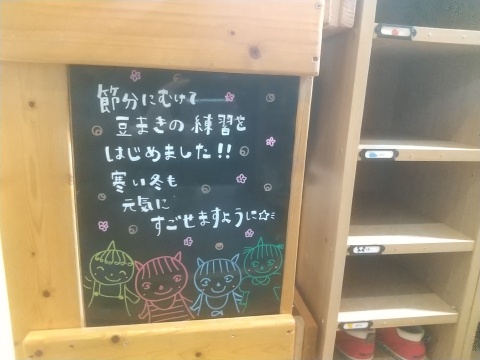 節分にむけて
豆まきの練習を
はじめました!!
寒い冬も
元気に
すごせますように☆